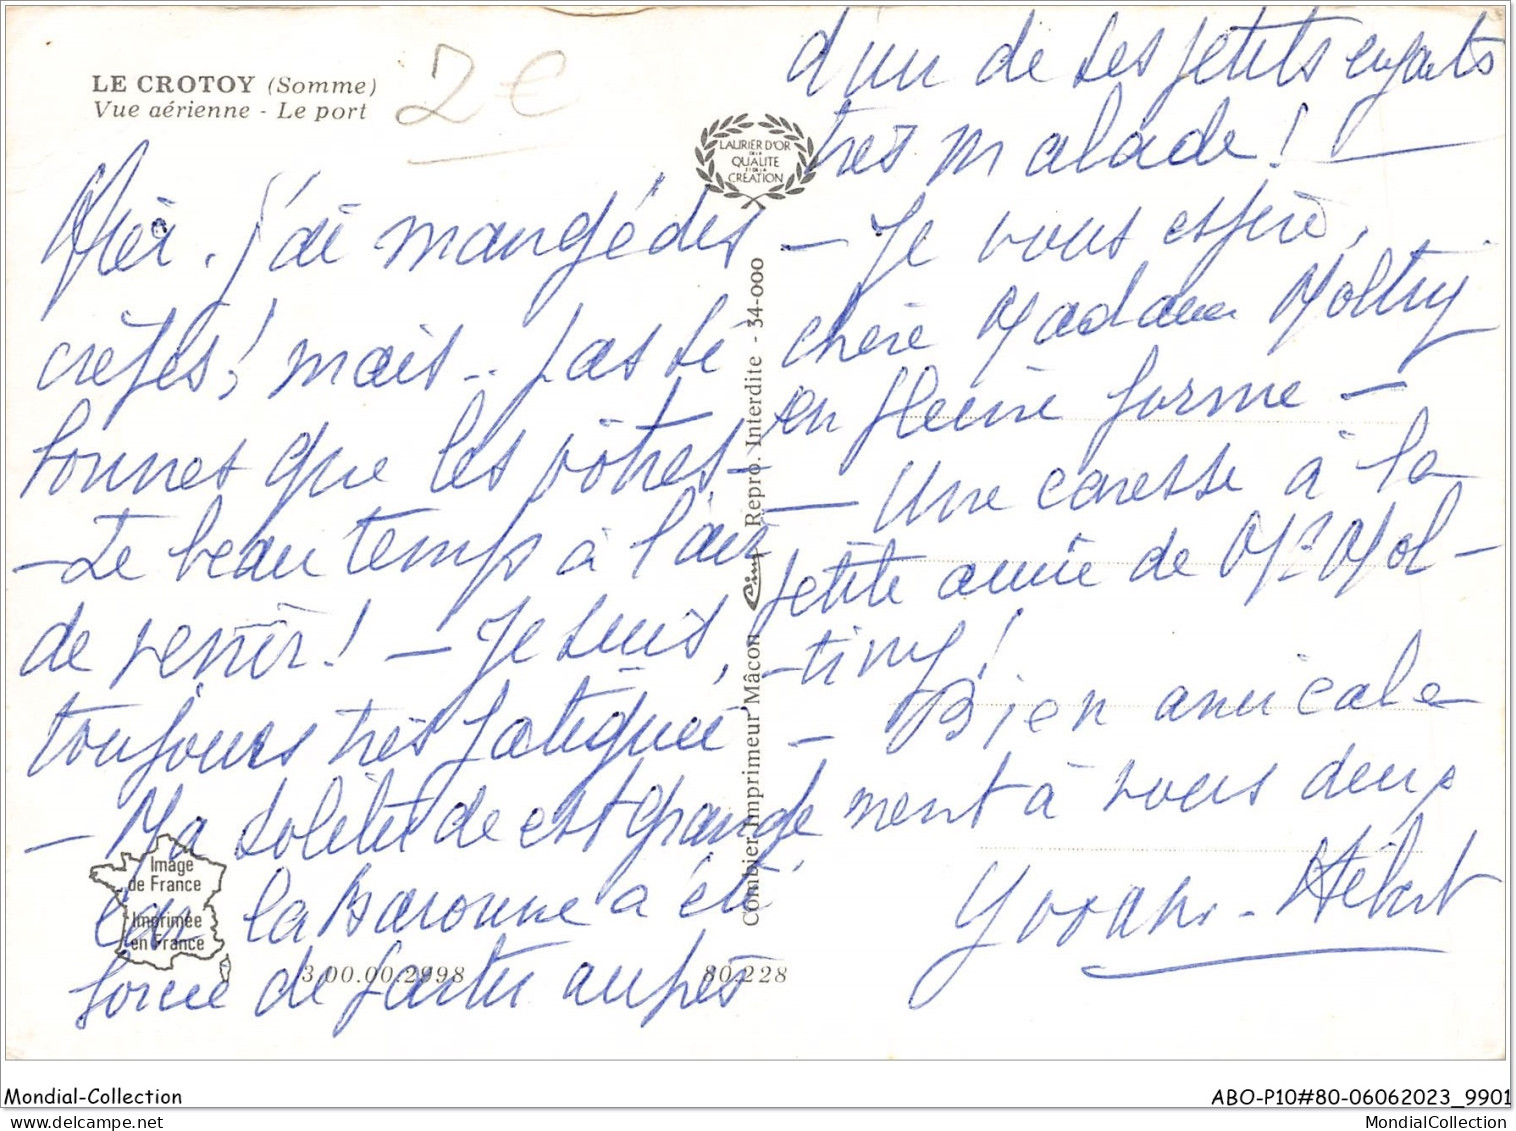 LE CROTOY (Somme)
Vue aérienne - Le port
2€
LAURIER D'OR
DE LA
QUALITE
ET DE LA
CREATION
Hier. j'ai mangé des
crêpes! mais.. pas si
bonnes que les vôtres -
- Le beau temps à l'air
de venir! - Je suis,
toujours très fatiguée
- Ma solitude est grande
car la Baronne a été
forcée de partir auprès
d'un de ses petits enfants
très malade!
- Je vous espère,
chère Madame Moltiny
en pleine forme -
- Une caresse à la
petite amie de Mr Mol-
-tiny!
- Bien amicale
ment à vous deux
Hébert
Image
de France
Imprimée
en France
3.00.00.2998
80.228
Combier Imprimeur Mâcon
Cim
Repro. Interdite - 34-000
Mondial-Collection
ABO-P10#80-06062023_9901
MondialCollection